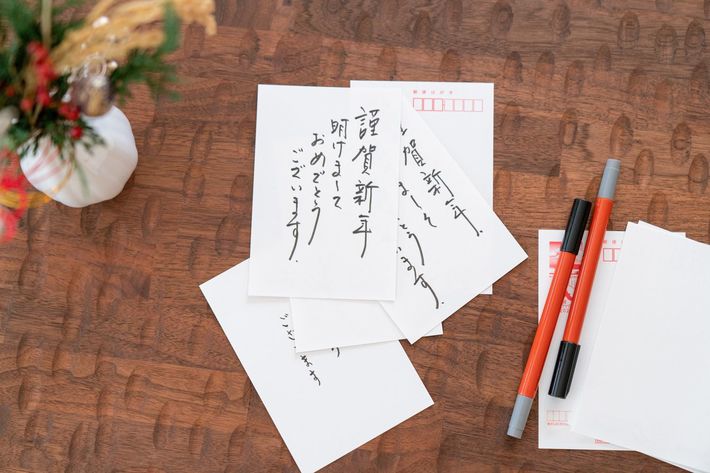 郵便はがき
謹賀新年
明けまして
おめでとう
ございます.
賀新年.
まして
とう
います.
ございます